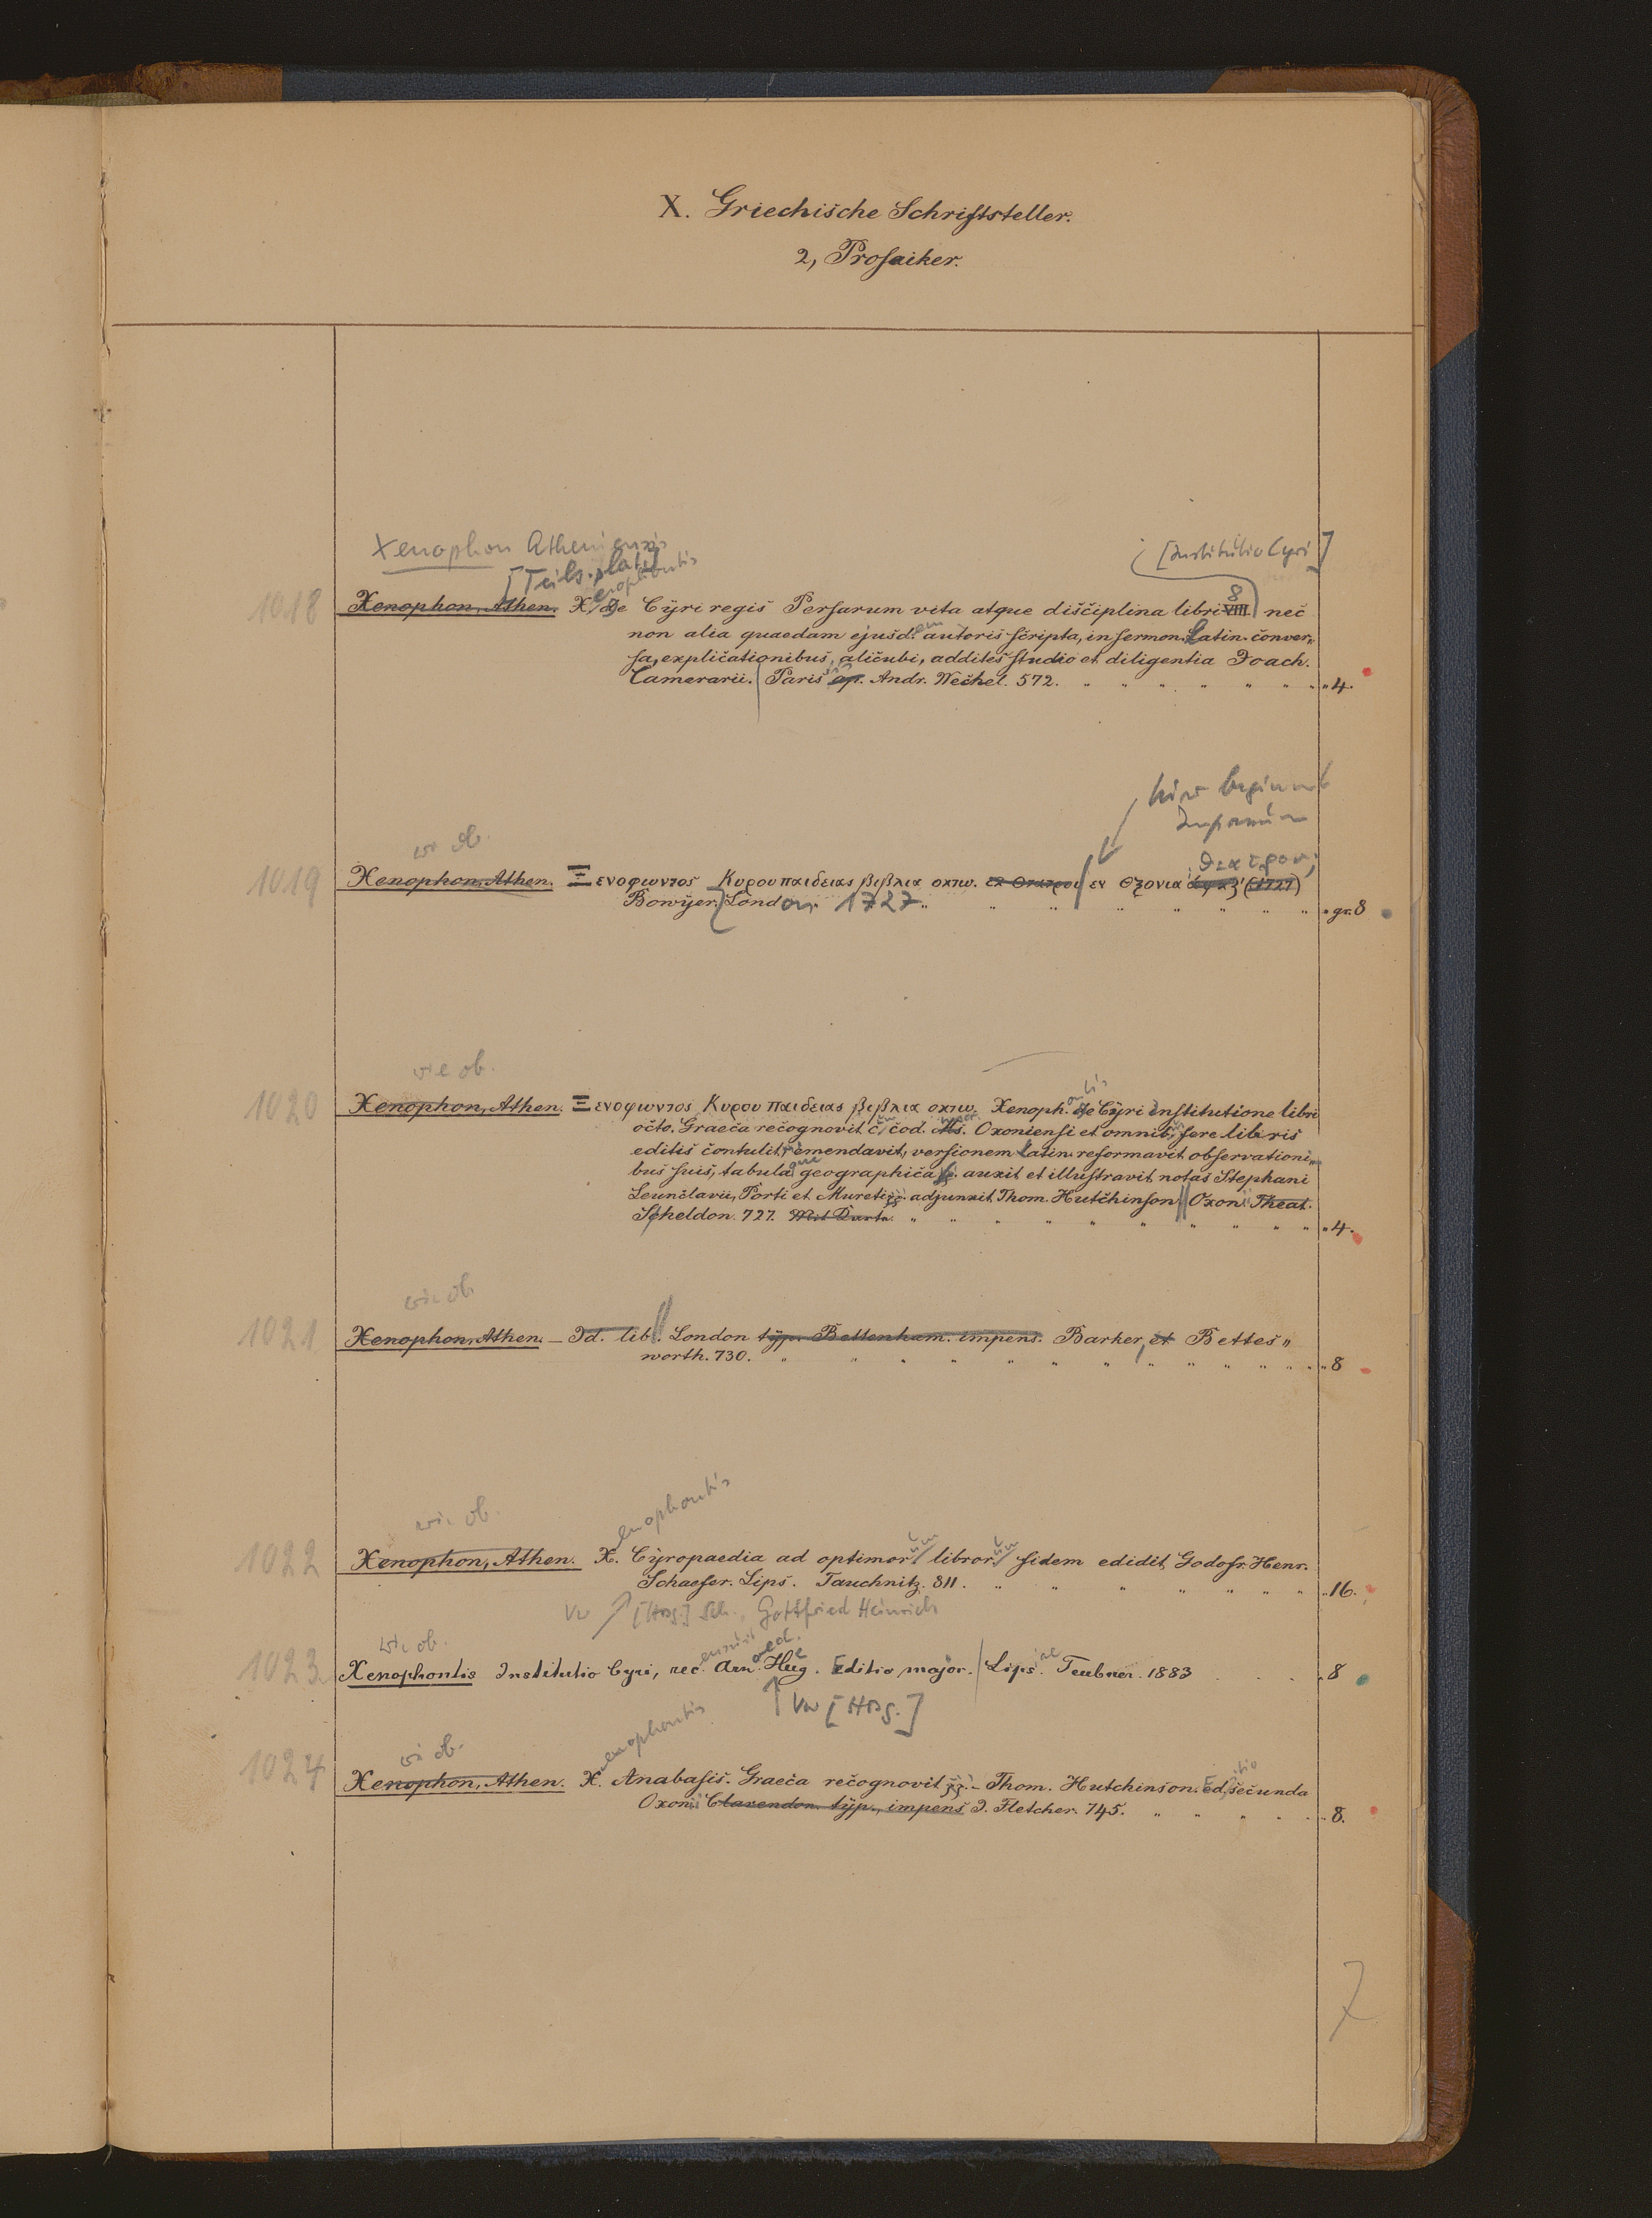 X. Griechische Schriftsteller.
2, Prosaiker.
Xenophon Atheniensis
[Institutio Cyri]
[Teilslat.]
enophontis
8
1018 Xenophon, Athen. X. de Cyri regis Persarum vita atque disciplina libri VIII. nec
non alia quaedam ejusd. autoris scripta, in sermon. Latin. conver„
sa, explicationibus, alicubi, additis studio et diligentia Joach.
Camerarii. Paris ap. Andr. Wechel. 572. „ „ „ „ „ „ „ „ 4.
hier beginnt
Impressum
wie ob.
θεατρον;
1019 Xenophon, Athen. Ξενοφωντος Κυρου παιδειας βιβλια οκτω. εκ Θεατρου εν Οξονια αψκζ' (1727)
Bowyer. London 1727 „ „ „ „ „ „ „ „ gr. 8
wie ob.
1020 Xenophon, Athen. Ξενοφωντος Κυρου παιδειας βιβλια οκτω. Xenoph. de Cyri institutione libri
octo. Graeca recognovit c. cod. Ms. Oxoniensi et omnib. fere libris
editis contulit, emendavit, versionem latin. reformavit observationi„
bus suis, tabula geographica auxit et illustravit notas Stephani
Leunclavii, Porti et Mureti adjunxit Thom. Hutchinson. Oxon. Theat.
Scheldon. 727. Mit Dart. „ „ „ „ „ „ „ „ „ „ 4.
wie ob.
1021 Xenophon, Athen. – Id. lib. London typ. Bettenham. impens. Barker, et Bettes„
worth. 730. „ „ „ „ „ „ „ „ „ „ „ 8
wie ob.
enophontis
1022 Xenophon, Athen. X. Cyropaedia ad optimor. libror. fidem edidit Godofr. Henr.
Schaefer. Lips. Tauchnitz. 811. „ „ „ „ „ „ „ 16.
Vw [Hrsg.] Sch., Gottfried Heinrich
wie ob.
ensuit
1023 Xenophontis Institutio Cyri, rec. Arn. Hug. Editio major. Lips. Teubner. 1883 . . . . 8
Vw [Hrsg.]
wie ob.
enophontis
itio
1024 Xenophon, Athen. X. Anabasis. Graeca recognovit – Thom. Hutchinson. Ed. secunda
Oxonii Clarendon. typ., impens J. Fletcher. 745. „ „ „ „ „ 8.
7